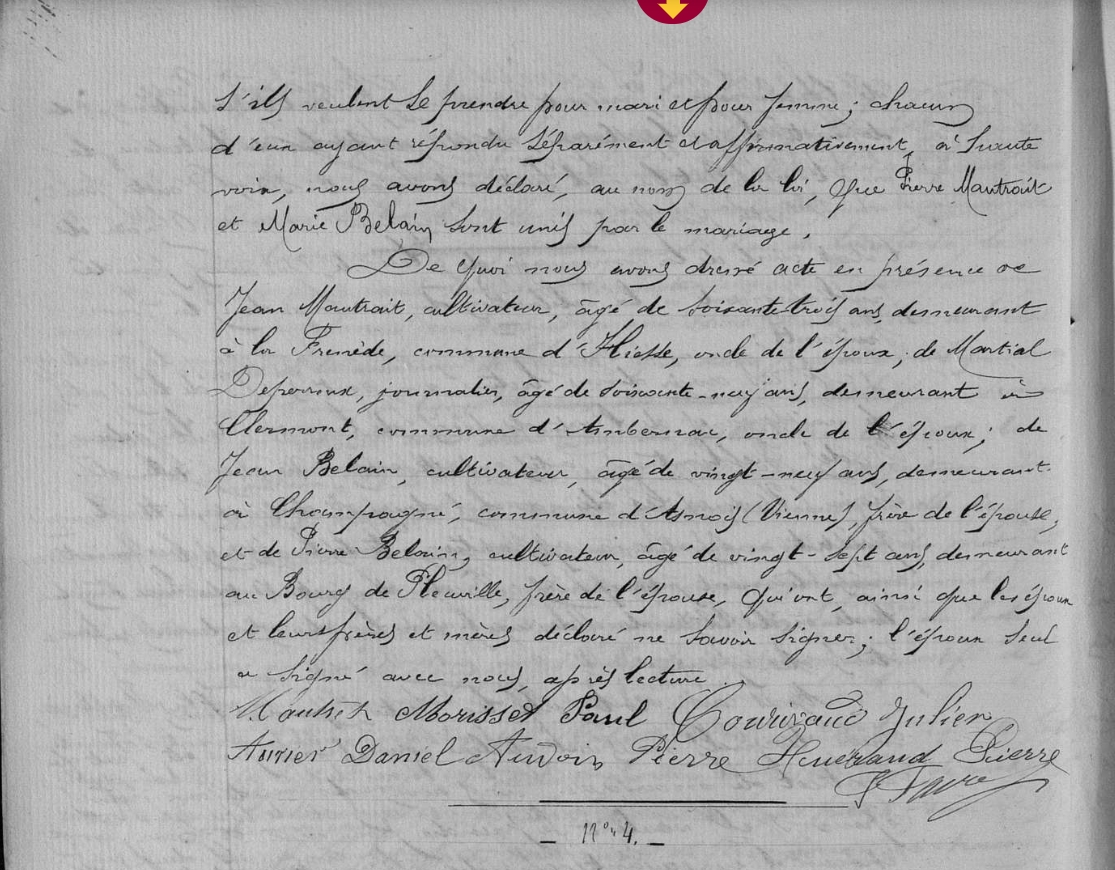 s'ils veulent se prendre pour mari et pour femme; chacun
d'eux ayant répondu séparément et affirmativement, à haute
voix, nous avons déclaré, au nom de la loi, que Pierre Mautrait
et Marie Belain sont unis par le mariage.
De quoi nous avons dressé acte en présence de
Jean Mautrait, cultivateur, âgé de soixante trois ans, demeurant
à la Frenède, commune d'Hiesse, oncle de l'époux; de Martial
journalier, âgé de soixante-neuf ans, demeurant à
Clermont, commune d'Ambernac, oncle de l'époux; de
Jean Belain, cultivateur, âgé de vingt-neuf ans, demeurant
à Champagné, commune d'Asnois (Vienne), frère de l'épouse,
et de Pierre Belain, cultivateur, âgé de vingt-sept ans, demeurant
au Bourg de Pleuville, frère de l'épouse, qui ont, ainsi que les époux
et leurs pères et mères déclaré ne savoir signer; l'époux seul
a signé avec nous, après lecture.
Morisset Paul Courivaud Julien
Daniel Audoin Pierre Pierre
Favre
N° 4.